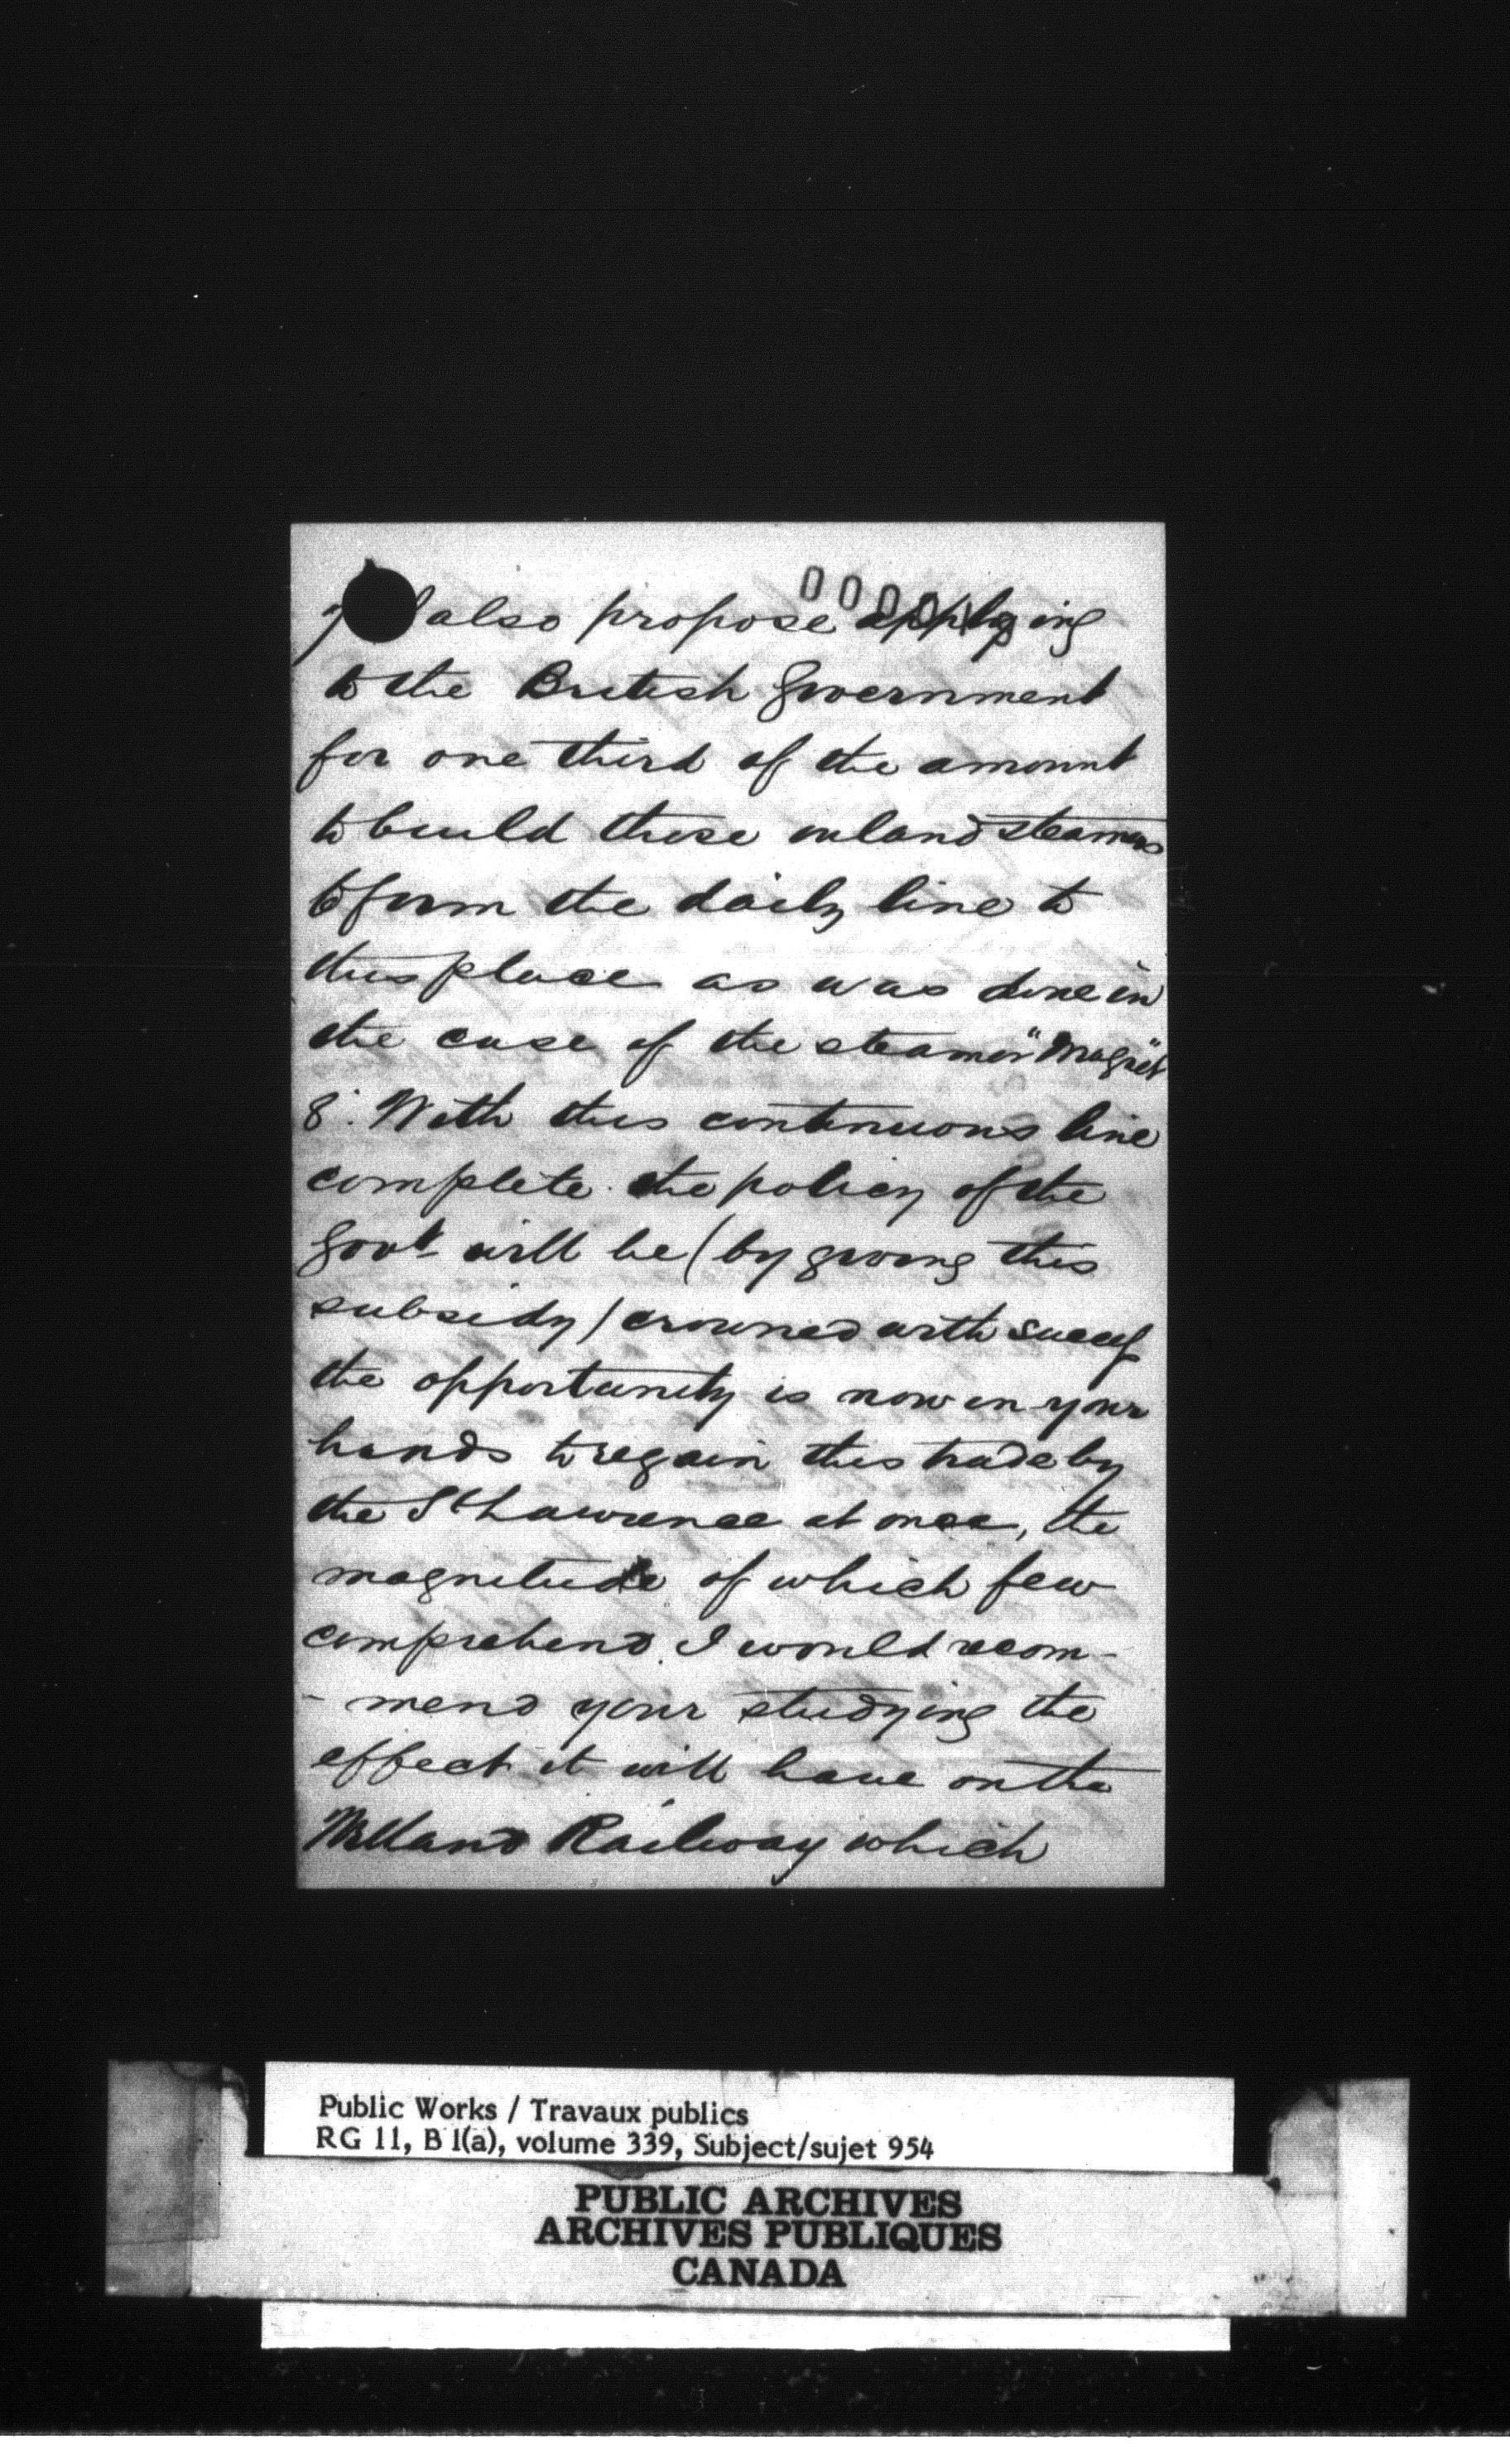 7 I also propose applying
to the British Government
for one third of the amount
to build these inland steamers
to form the daily line to
this place as was done in
the case of the steamer "Magnet"
8. With this continuous line
complete the policy of the
Govt. will be (by giving this
subsidy) crowned with success
the opportunity is now in your
hands to regain this trade by
the St Lawrence at once, the
magnitude of which few
comprehend. I would recom-
- mend your studying the
effect it will have on the
Welland Railway which
Public Works / Travaux publics
RG 11, B 1(a), volume 339, Subject/sujet 954
PUBLIC ARCHIVES
ARCHIVES PUBLIQUES
CANADA